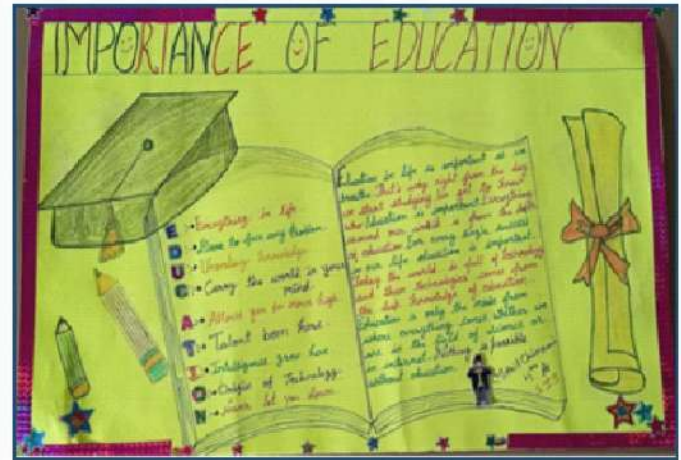 IMPORTANCE OF EDUCATION
E :- Everything in life
D :- Dare to face any Problem.
U :- Unending knowledge.
C :- Carry the world in your mind.
A :- you to move high
T :- Talent born here.
I :- Intelligence grow here
O :- Origin of Technology.
N :- Never let you down.
Education in life is important as we
breathe. That's why right from the day
we start studying we get to know
Education is important. Everything
around our world is from the gift
of education. For every single
in our life education is important.
Today the world is full of technology
and these techniques comes from
the knowledge of education.
Education is only the from
where everything comes whether we
are in the field of science or
in internet. Nothing is possible
without education.